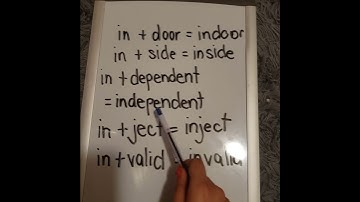 in + door = indoor
in + side = inside
in + dependent
= independent
in + ject = inject
in + valid = invalid